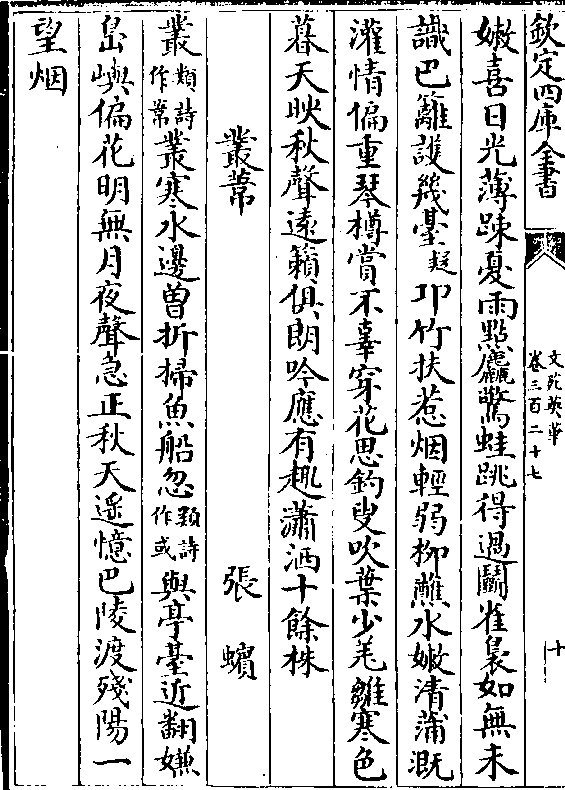 欽定四庫全書
文苑英華
卷三百二十七
十
嫩喜日光薄踈憂雨點麤驚蛙跳得過鬭雀裊如無未
識巴籬護幾䑓疑卭竹扶惹烟輕弱栁蘸水嫩清蒲溉
灌情偏重琴樽賞不辜穿花思釣叟吹葉少羌雛寒色
暮天映秋聲逺籟俱朗吟應有趣瀟洒十餘株
叢葦　張蠙
叢類詩作葦叢寒水邊曾折掃魚船忽類詩作或與亭臺近翻嫌
島嶼偏花明無月夜聲急正秋天遥憶巴陵渡殘陽一
望烟